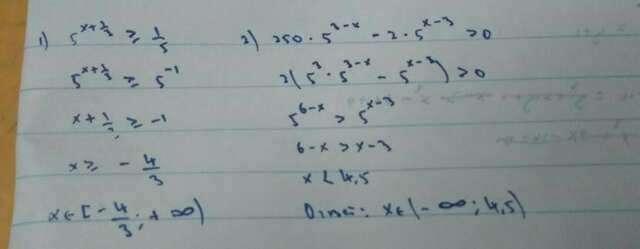 1) 5^{x+1/3} ≥ 1/5
5^{x+1/3} ≥ 5^{-1}
x+1/3 ≥ -1
x ≥ -4/3
x∈[-4/3; +∞)
2) 250·5^{3-x} - 2·5^{x-3} > 0
2(5^3·5^{3-x} - 5^{x-3}) > 0
5^{6-x} > 5^{x-3}
6-x > x-3
x < 4,5
Ответ: x∈(-∞; 4,5)